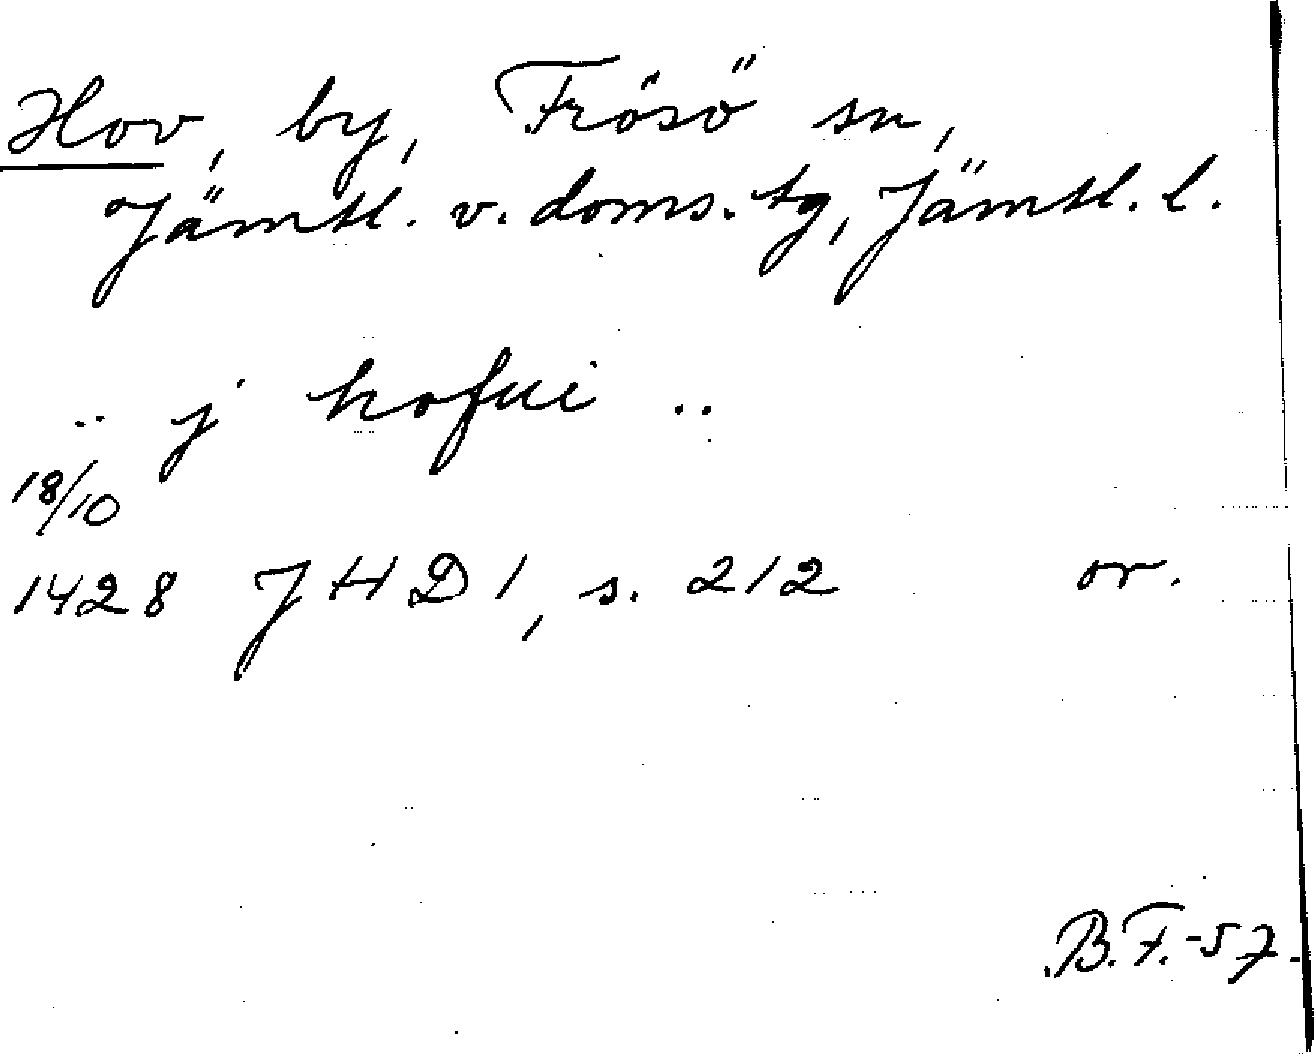 Hov, by, Frösö sn,
Jämtl. v. doms. tg, Jämtl. l.
.. j hofue ..
18/10
1428 JHD 1, s. 212 or.
B.F.-57.